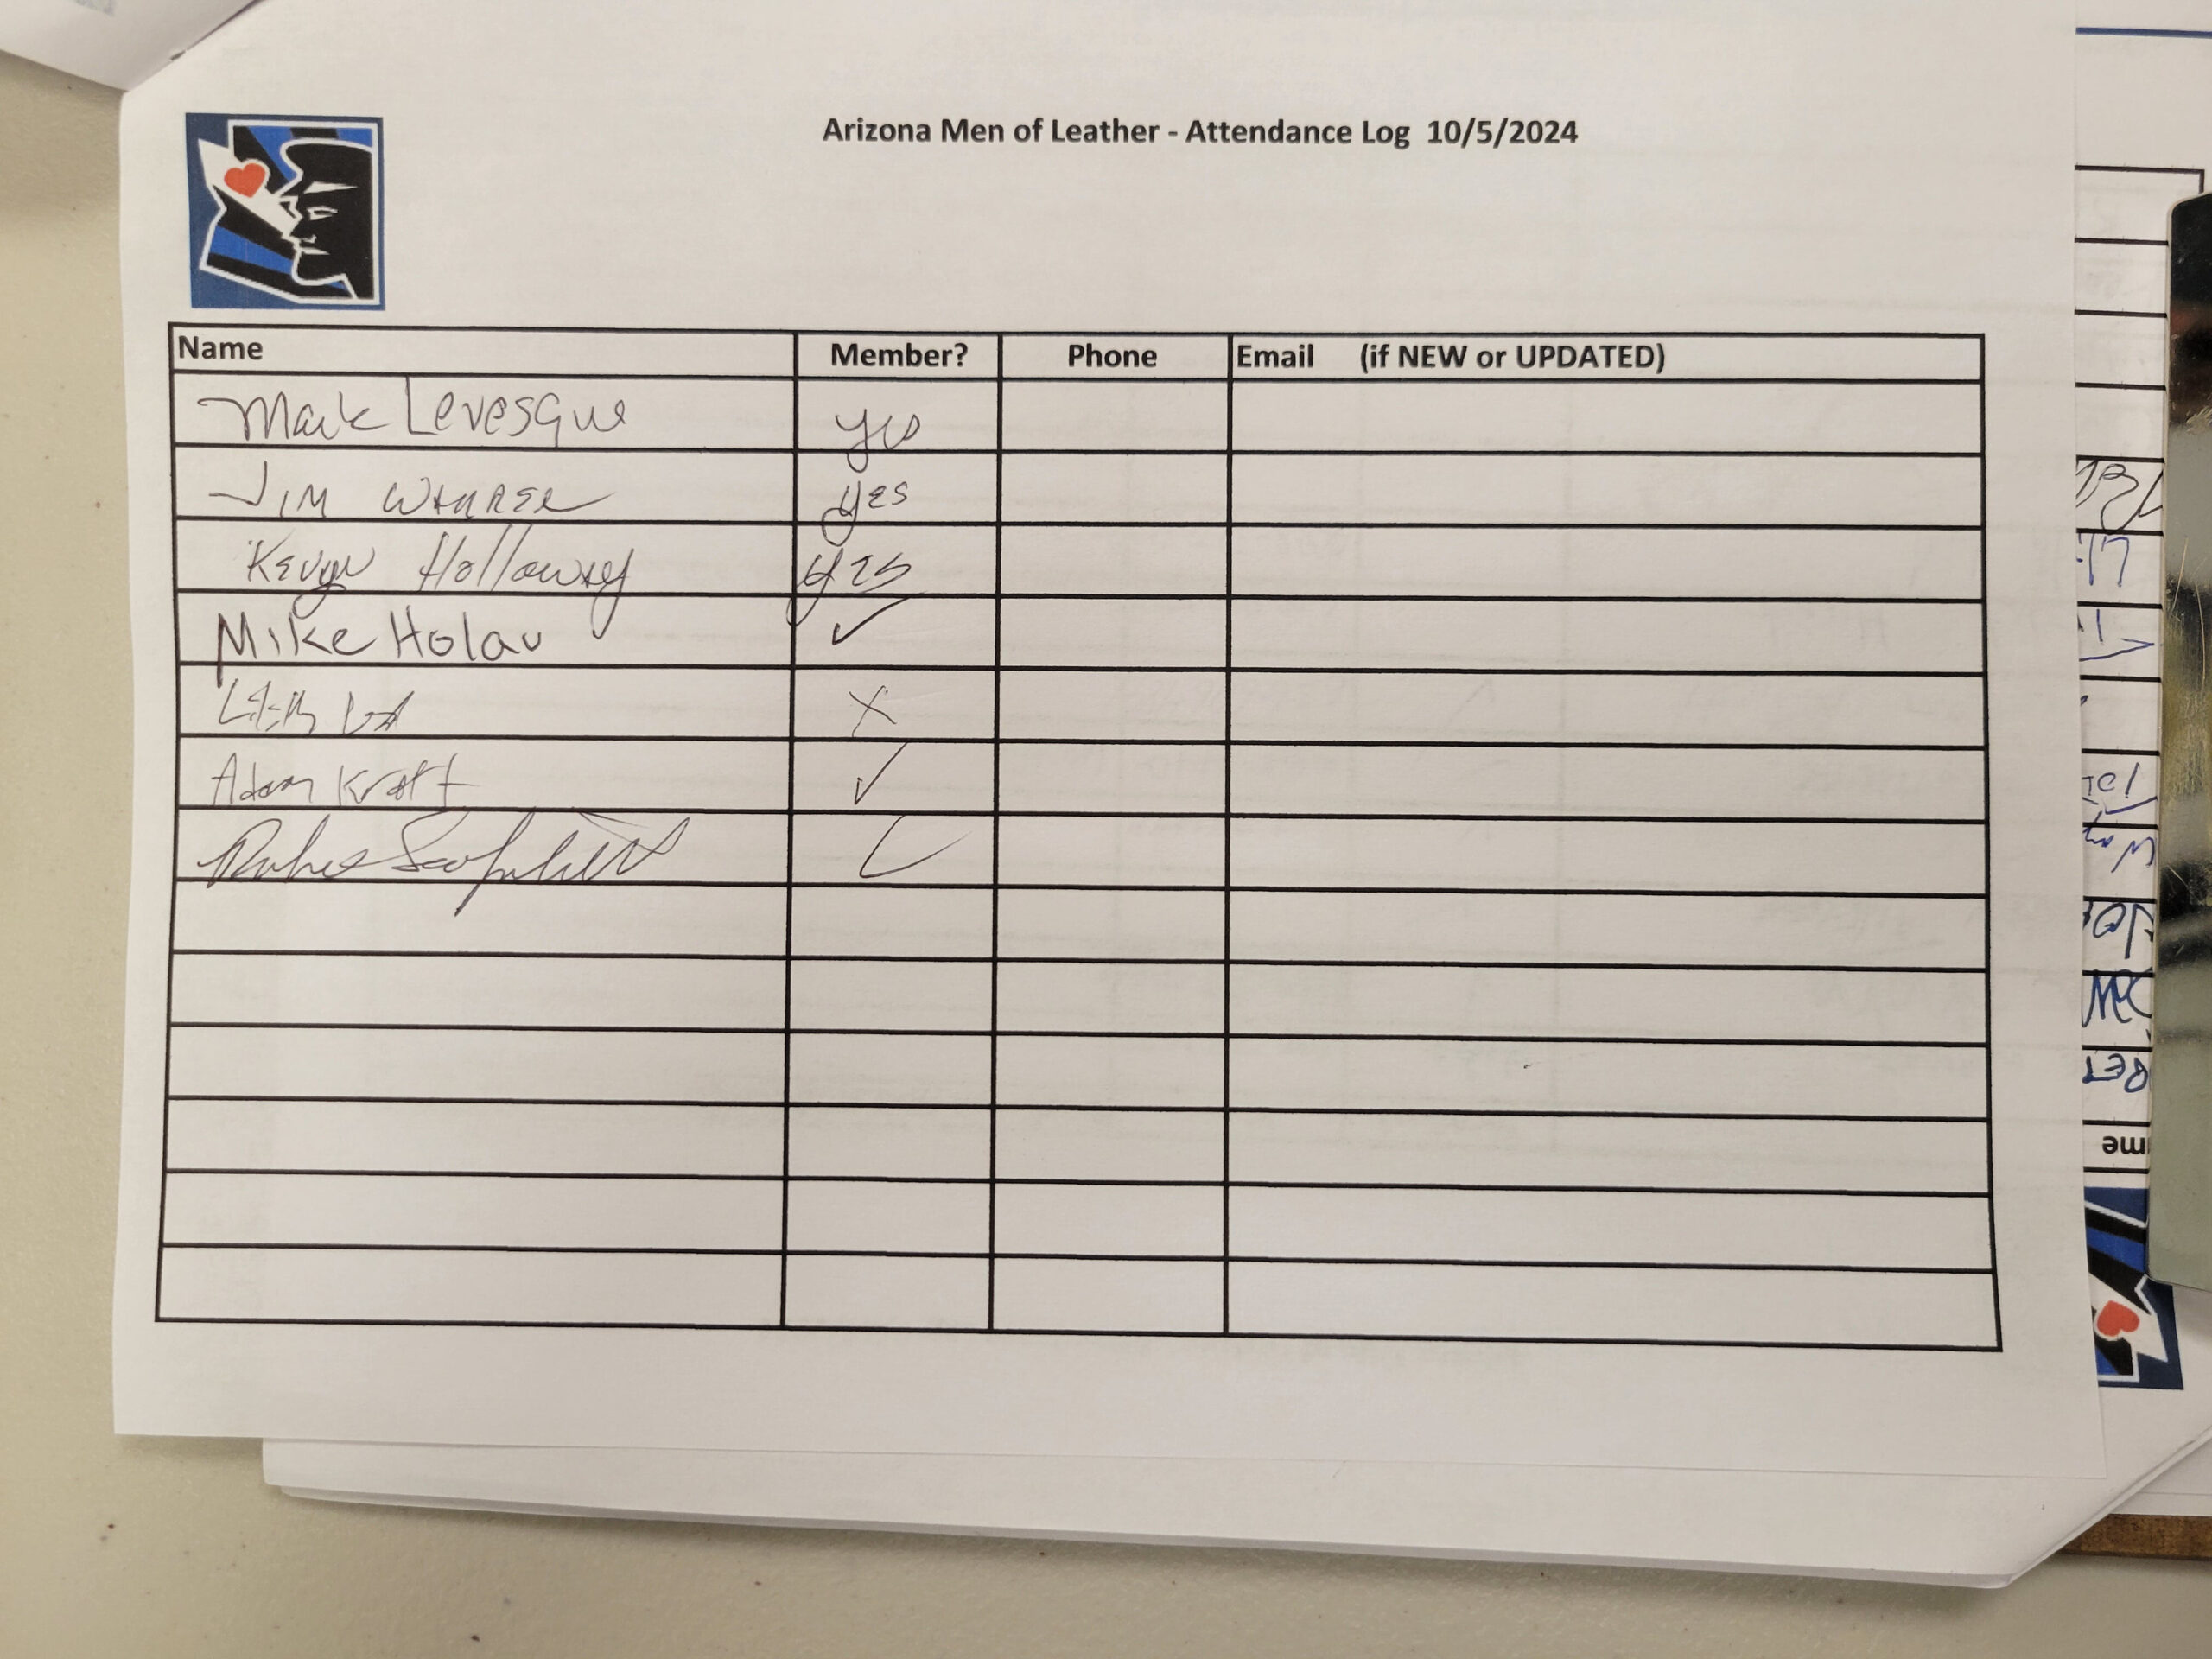 Arizona Men of Leather - Attendance Log 10/5/2024
Name Member? Phone Email (if NEW or UPDATED)
Mark Levesque yes
Jim yes
Kevyn Holloway yes
Mike Holau ✓
X
Adam Kraft ✓
✓